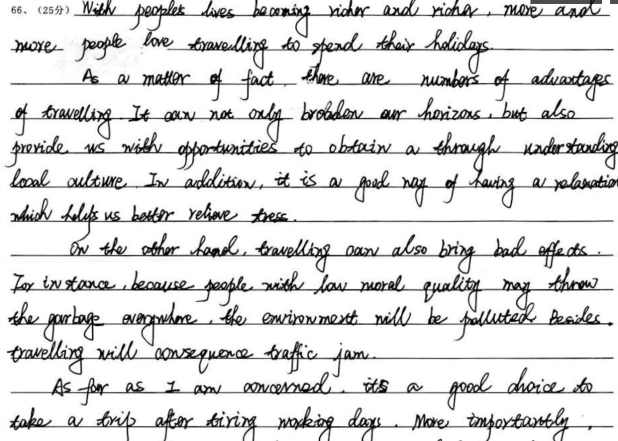 66、(25分) With peoples lives becoming richer and richer, more and
more people love travelling to spend their holidays.
As a matter of fact, there are numbers of advantages
of travelling. It can not only broaden our horizons, but also
provide us with opportunities to obtain a through understanding
local culture. In addition, it is a good way of having a relaxation
which helps us better relieve tress.
On the other hand, travelling can also bring bad effects.
For instance, because people with low moral quality may throw
the garbage everywhere, the environmentt will be polluted. Besides.
travelling will consequence traffic jam.
As far as I am concerned, its a good choice to
take a trip after tiring working days. More importantly,